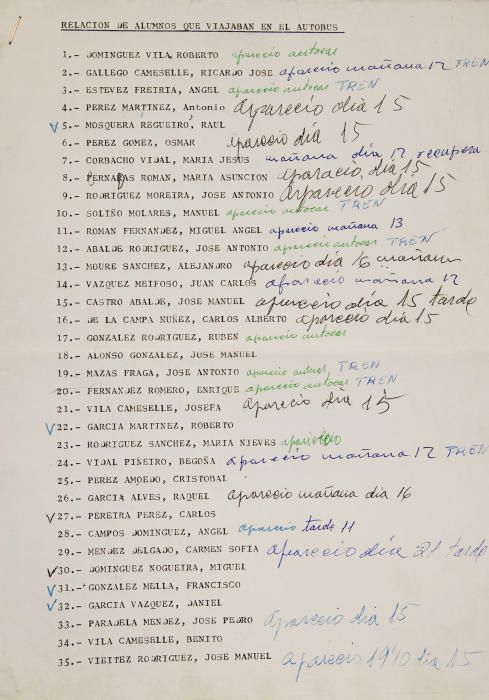 RELACION DE ALUMNOS QUE VIAJABAN EN EL AUTOBUS
1.- DOMINGUEZ VILA, ROBERTO aparecio autocar
2.- GALLEGO CAMESELLE, RICARDO JOSE aparecio mañana 12 TREN
3.- ESTEVEZ FREIRIA, ANGEL aparecio autocar TREN
4.- PEREZ MARTINEZ, Antonio Aparecio dia 15
5.- MOSQUERA REGUEIRO, RAUL
6.- PEREZ GOMEZ, OSMAR aparecio dia 15
7.- CORBACHO VIDAL, MARIA JESUS mañana dia 12 recupera
8.- ROMAN, MARIA ASUNCION aparacio, dia 15
9.- RODRIGUEZ MOREIRA, JOSE ANTONIO Aparecio dia 15
10.- SOLIÑO MOLARES, MANUEL aparecio autocar TREN
11.- ROMAN FERNANDEZ, MIGUEL ANGEL aparecio mañana 13
12.- ABALDE RODRIGUEZ, JOSE ANTONIO aparecio autocar TREN
13.- MOURE SANCHEZ, ALEJANDRO aparecio dia 16 mañana
14.- VAZQUEZ MEIFOSO, JUAN CARLOS aparacio mañana 12
15.- CASTRO ABALDE, JOSE MANUEL aparecio dia 15 tarde
16.- DE LA CAMPA NUÑEZ, CARLOS ALBERTO aparecio dia 15
17.- GONZALEZ RODRIGUEZ, RUBEN aparecio autocar
18.- ALONSO GONZALEZ, JOSE MANUEL
19.- MAZAS FRAGA, JOSE ANTONIO aparecio autocar TREN
20.- FERNANDEZ ROMERO, ENRIQUE aparecio autocar TREN
21.- VILA CAMESELLE, JOSEFA aparecio dia 15
22.- GARCIA MARTINEZ, ROBERTO
23.- RODRIGUEZ SANCHEZ, MARIA NIEVES aparecio
24.- VIDAL PIÑEIRO, BEGOÑA aparecio mañana 12 TREN
25.- PEREZ AMOEDO, CRISTOBAL
26.- GARCIA ALVES, RAQUEL aparecio mañana dia 16
27.- PEREIRA PEREZ, CARLOS
28.- CAMPOS DOMINGUEZ, ANGEL aparecio tarde 11
29.- MENDEZ DELGADO, CARMEN SOFIA aparecio dia 21 tarde
30.- DOMINGUEZ NOGUEIRA, MIGUEL
31.- GONZALEZ MELLA, FRANCISCO
32.- GARCIA VAZQUEZ, DANIEL
33.- PARADELA MENDEZ, JOSE PEDRO aparecio dia 15
34.- VILA CAMESELLE, BENITO
35.- VIEITEZ RODRIGUEZ, JOSE MANUEL aparecio 15